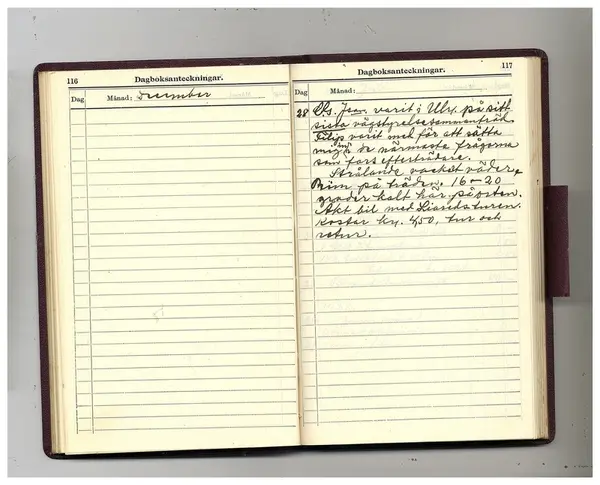 116
Dagboksanteckningar.
Dag
Månad: December
117
Dagboksanteckningar.
Dag
Månad:
28 Lds. Jean varit i Ulv. på sitt
sista vägstyrelsesammanträd.
Filip varit med för att sätta
mig in i de närmaste frågorna
som fars efterträdare.
Strålande vackert väder,
Rim på träden. 16-20
grader kallt här på östen.
Åkt bil med Liaredsturen.
kostar kr. 4,50, tur och
retur.